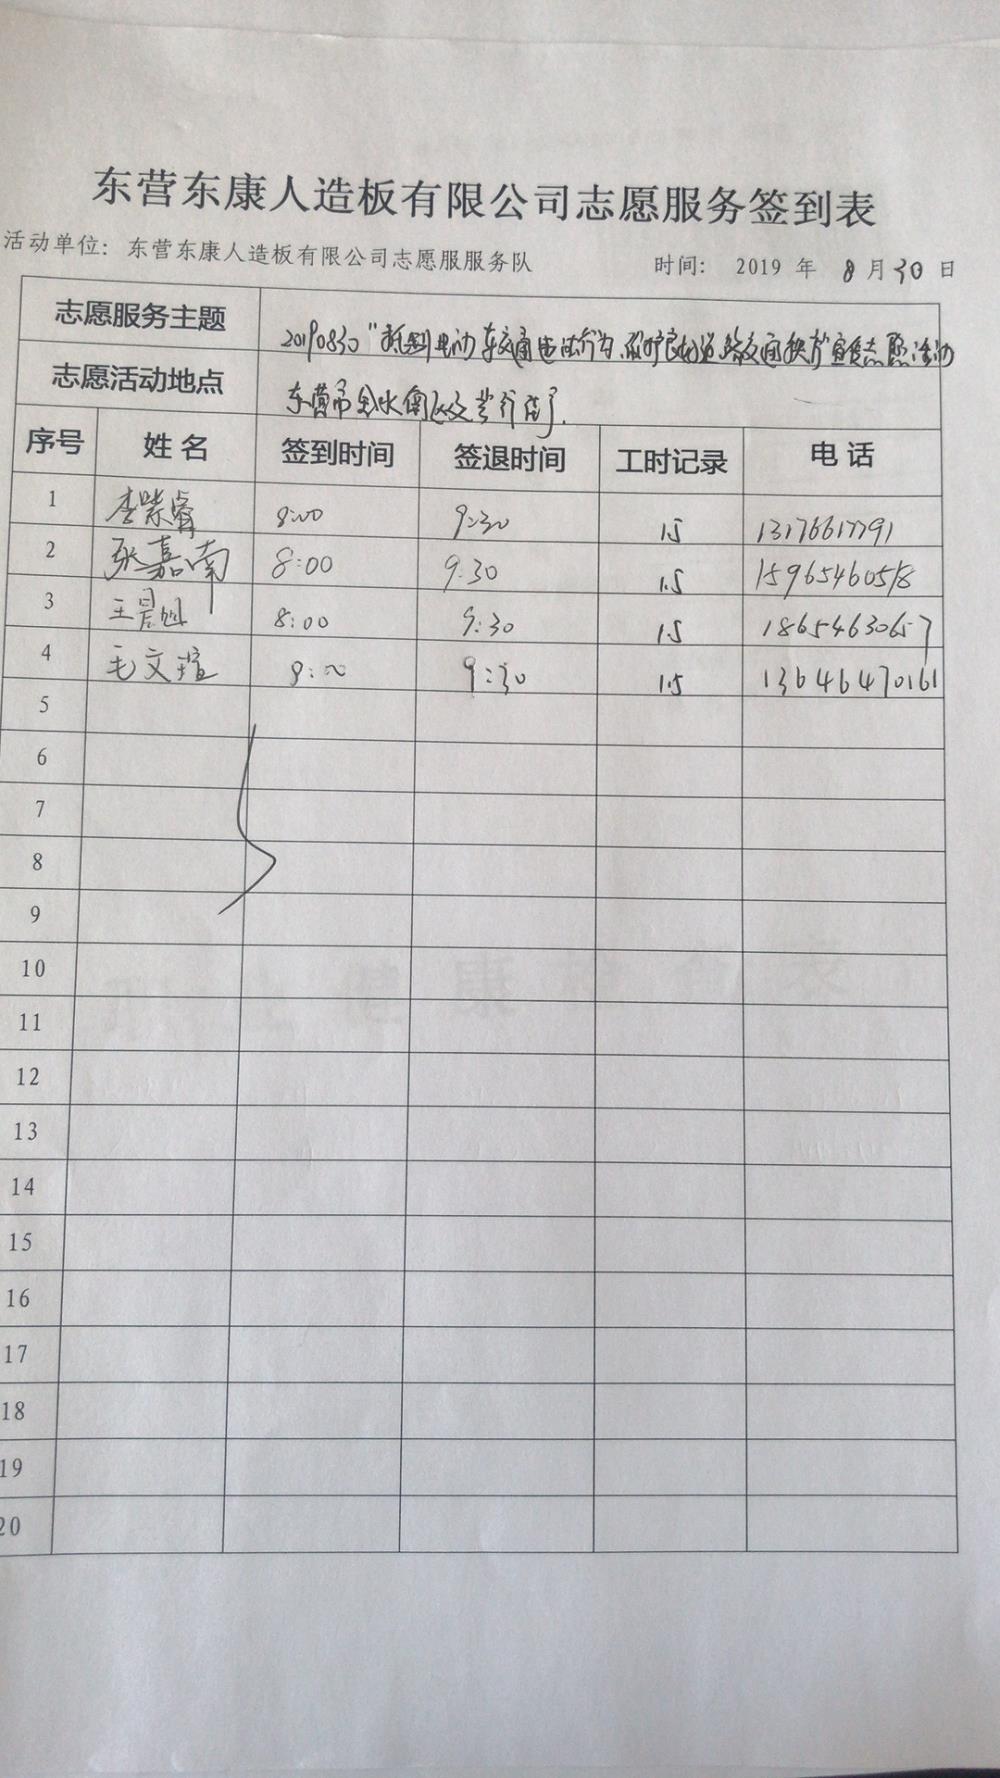 东营东康人造板有限公司志愿服务签到表
活动单位：东营东康人造板有限公司志愿服服务队 时间： 2019 年 8 月 30 日
志愿服务主题 20190830“抵制电动车交通违法行为，维护良好道路交通秩序”宣传志愿活动
志愿活动地点 东营市
序号 姓名 签到时间 签退时间 工时记录 电话
1 李紫睿 8:00 9:30 1.5 13176617791
2 张嘉南 8:00 9:30 1.5 15965460518
3 王晨旭 8:00 9:30 1.5 18654630657
4 毛文瑄 8:00 9:30 1.5 13646470161
5
6
7
8
9
10
11
12
13
14
15
16
17
18
19
20